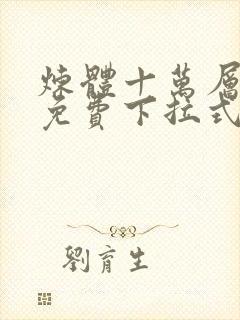 煉體十萬層
免費下拉式
劉育生